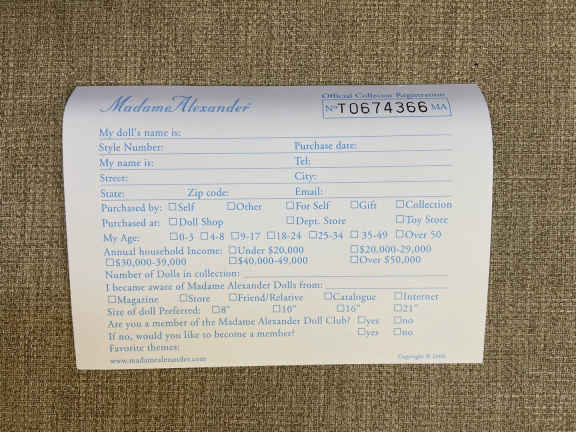 Madame Alexander
Official Collector Registration
Nº T0674366 MA
My doll's name is:
Style Number: Purchase date:
My name is: Tel:
Street: City:
State: Zip code: Email:
Purchased by: ☐Self ☐Other ☐For Self ☐Gift ☐Collection
Purchased at: ☐Doll Shop ☐Dept. Store ☐Toy Store
My Age: ☐0-3 ☐4-8 ☐9-17 ☐18-24 ☐25-34 ☐35-49 ☐Over 50
Annual household Income: ☐Under $20,000 ☐$20,000-29,000
☐$30,000-39,000 ☐$40,000-49,000 ☐Over $50,000
Number of Dolls in collection:
I became aware of Madame Alexander Dolls from:
☐Magazine ☐Store ☐Friend/Relative ☐Catalogue ☐Internet
Size of doll Preferred: ☐8" ☐10" ☐16" ☐21"
Are you a member of the Madame Alexander Doll Club? ☐yes ☐no
If no, would you like to become a member? ☐yes ☐no
Favorite themes:
www.madamealexander.com Copyright ©